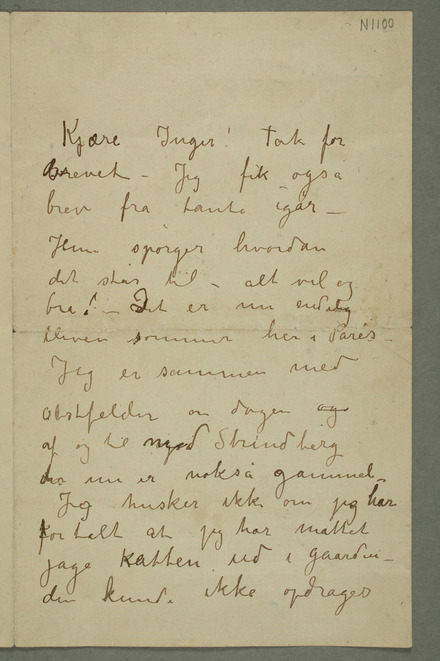 N1100
Kjære Inger! Tak for
Brevet – Jeg fik også
brev fra tante igår –
Hun spörger hvordan
det står til – alt vel og
bra! – Det er nu endelig
bleven sommer her i Paris –
Jeg er sammen med
Obstfelder om dagen og
af og til med Strindberg
nu er nokså gammel –
Jeg husker ikke om jeg har
fortalt at jeg har måttet
jage katten ud i gaarden –
den kunde ikke opdrages